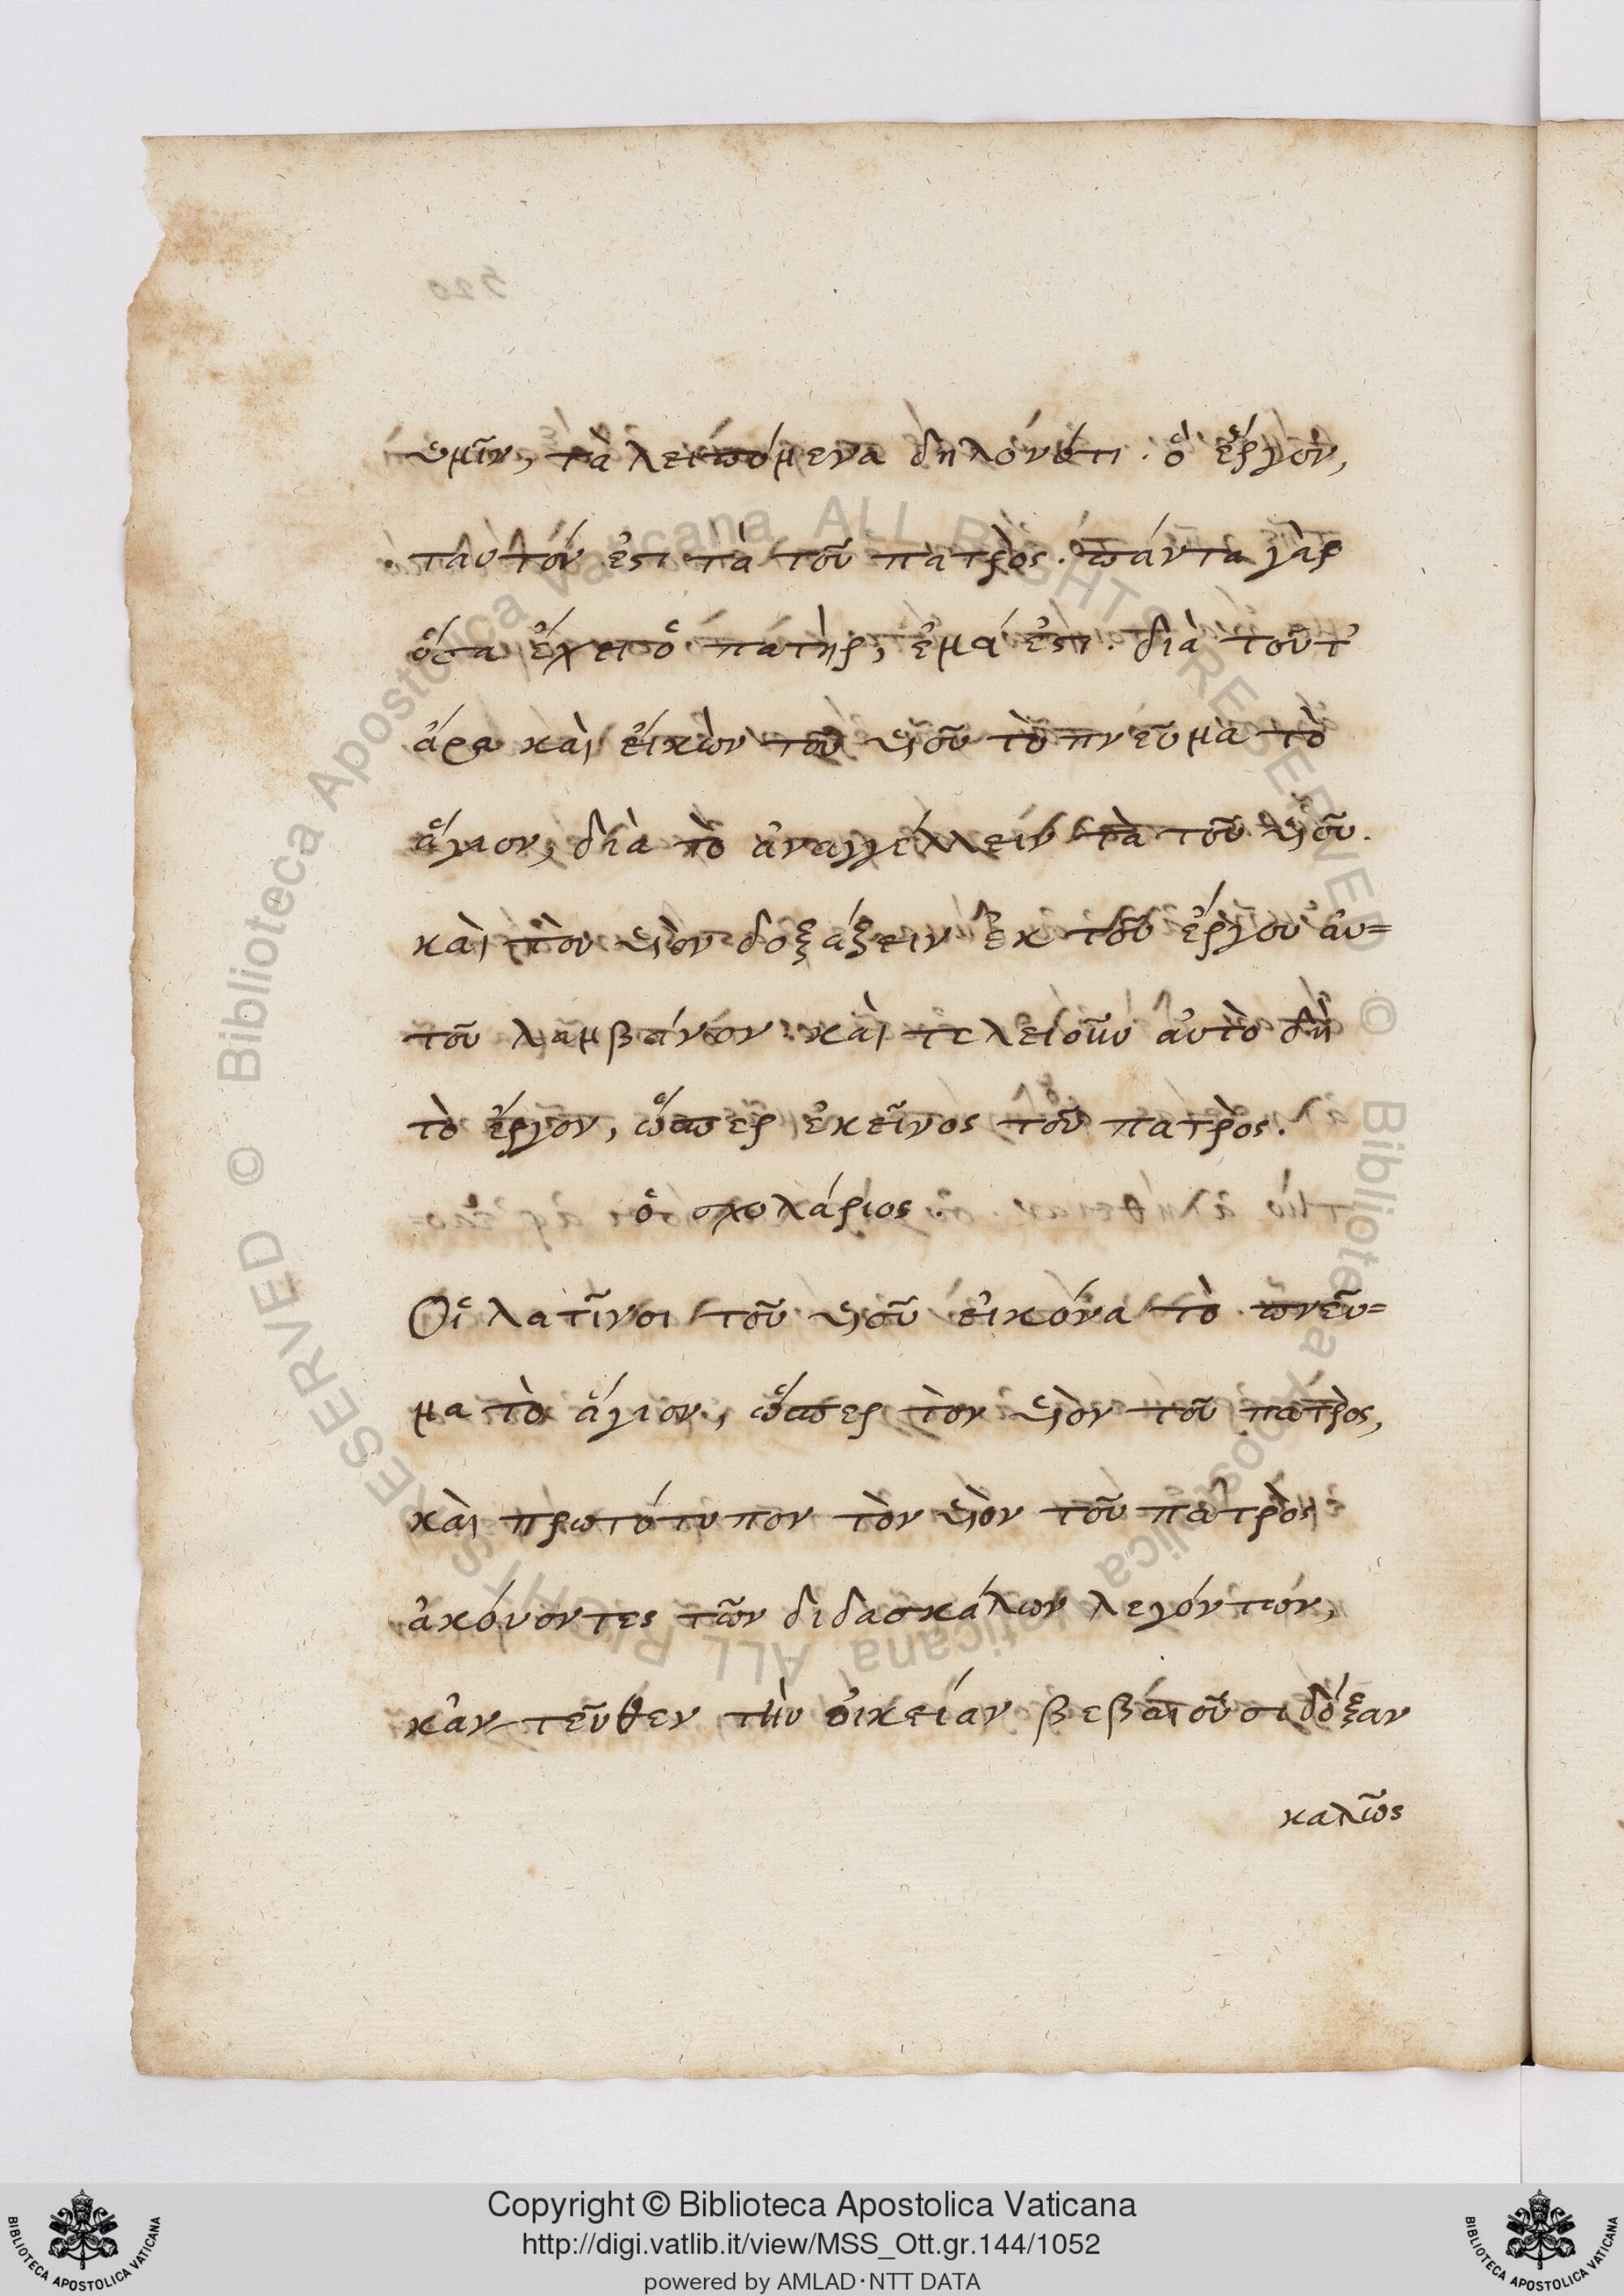 ὑμῖν, τὰ λειπόμενα δηλόνότι· ὃ ἔργον,
ταυτόν ἐστι τὰ τοῦ πατρὸς. πάντα γὰρ
ὅσα ἔχει ὁ πατὴρ, ἐμά ἐστι. διὰ τοῦτ'
ἄρα καὶ εἰκὼν τοῦ υἱοῦ τὸ πνεῦμα τὸ
ἅγιον, διὰ τὸ ἀναγγέλλειν τὰ τοῦ υἱοῦ.
καὶ τὸν υἱὸν δοξάζειν ἐκ τοῦ ἔργου ἀυ=
τοῦ λαμβάνον καὶ τελειοῦν ἀυτὸ δὴ
τὸ ἔργον, ὥσπερ ἐκεῖνος τοῦ πατρὸς.
ὁ σχολάριος.
Οἱ λατῖνοι τοῦ υἱοῦ εἰκόνα τὸ πνεῦ=
μα τὸ ἅγιον, ὥσπερ τὸν υἱὸν τοῦ πατρὸς,
καὶ πρωτότυπον τὸν υἱὸν τοῦ πατρὸς
ἀκόυοντες τῶν διδασκάλων λεγόντων,
κἀντεῦθεν τὴν οἰκείαν βεβαιοῦσι δόξαν
καλῶς
© Biblioteca Apostolica Vaticana ALL RIGHTS RESERVED © Biblioteca Apostolica Vaticana ALL RIGHTS RESERVED
Copyright © Biblioteca Apostolica Vaticana
http://digi.vatlib.it/view/MSS_Ott.gr.144/1052
powered by AMLAD·NTT DATA
BIBLIOTECA APOSTOLICA VATICANA
BIBLIOTECA APOSTOLICA VATICANA